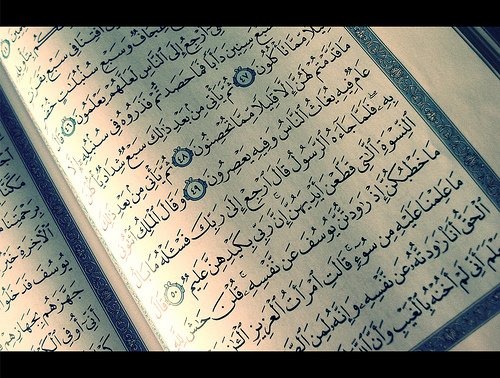 أَفْتِنَا فِي سَبْعِ
عِجَافٌ وَسَبْعِ سُنۢبُلَٰتٍ خُضْرٍ
أَرْجِعُ إِلَى ٱلنَّاسِ لَعَلَّهُمْ يَعْلَمُونَ ٤٦
سَبْعَ سِنِينَ دَأَبًا فَمَا حَصَدتُّمْ فَذَرُوهُ فِي سُنۢبُلِهِۦٓ إِلَّا
قَلِيلًا مِّمَّا تَأْكُلُونَ ٤٧ ثُمَّ يَأْتِي مِنۢ بَعْدِ ذَٰلِكَ سَبْعٌ شِدَادٌ يَأْكُلْنَ
مَا قَدَّمْتُمْ لَهُنَّ إِلَّا قَلِيلًا مِّمَّا تُحْصِنُونَ ٤٨ ثُمَّ يَأْتِي مِنۢ بَعْدِ ذَٰلِكَ
عَامٌ فِيهِ يُغَاثُ ٱلنَّاسُ وَفِيهِ يَعْصِرُونَ ٤٩ وَقَالَ ٱلْمَلِكُ ٱئْتُونِي
بِهِۦ فَلَمَّا جَآءَهُ ٱلرَّسُولُ قَالَ ٱرْجِعْ إِلَىٰ رَبِّكَ فَسْـَٔلْهُ مَا بَالُ
ٱلنِّسْوَةِ ٱلَّٰتِي قَطَّعْنَ أَيْدِيَهُنَّ إِنَّ رَبِّي بِكَيْدِهِنَّ عَلِيمٌ ٥٠ قَالَ
مَا خَطْبُكُنَّ إِذْ رَٰوَدتُّنَّ يُوسُفَ عَن نَّفْسِهِۦ قُلْنَ حَٰشَ لِلَّهِ
مَا عَلِمْنَا عَلَيْهِ مِن سُوٓءٍ قَالَتِ ٱمْرَأَتُ ٱلْعَزِيزِ
ٱلْحَقُّ أَنَا۠ رَٰوَدتُّهُۥ عَن نَّفْسِهِۦ وَإِنَّهُۥ لَمِنَ
أَنِّي لَمْ أَخُنْهُ بِٱلْغَيْبِ وَأَنَّ ٱللَّهَ
مَكَّنَّا
بِرَحْمَتِنَا
ٱلْءَاخِرَةِ خَيْرٌ
يُوسُفَ فَدَخَلُوا۟
جَهَّزَهُم بِجَهَازِهِمْ
أَنِّيٓ أُوفِي